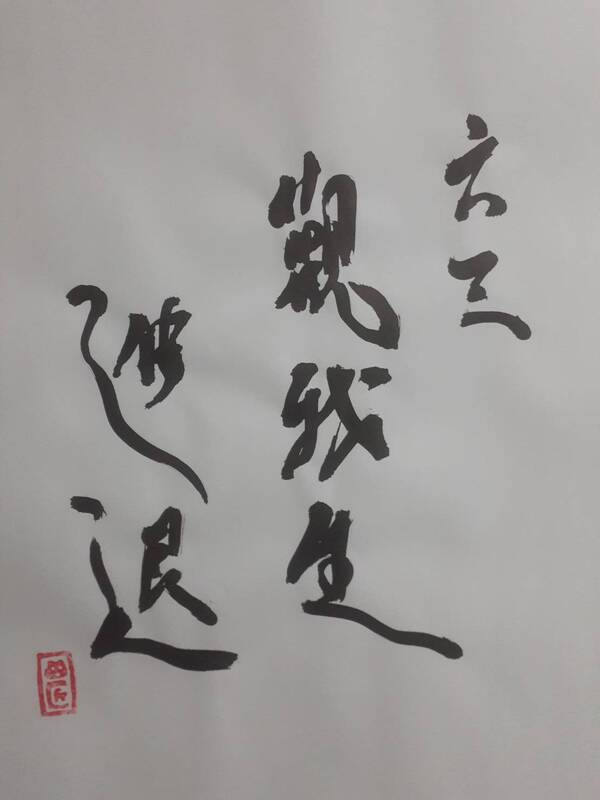 六三
觀我生
進退